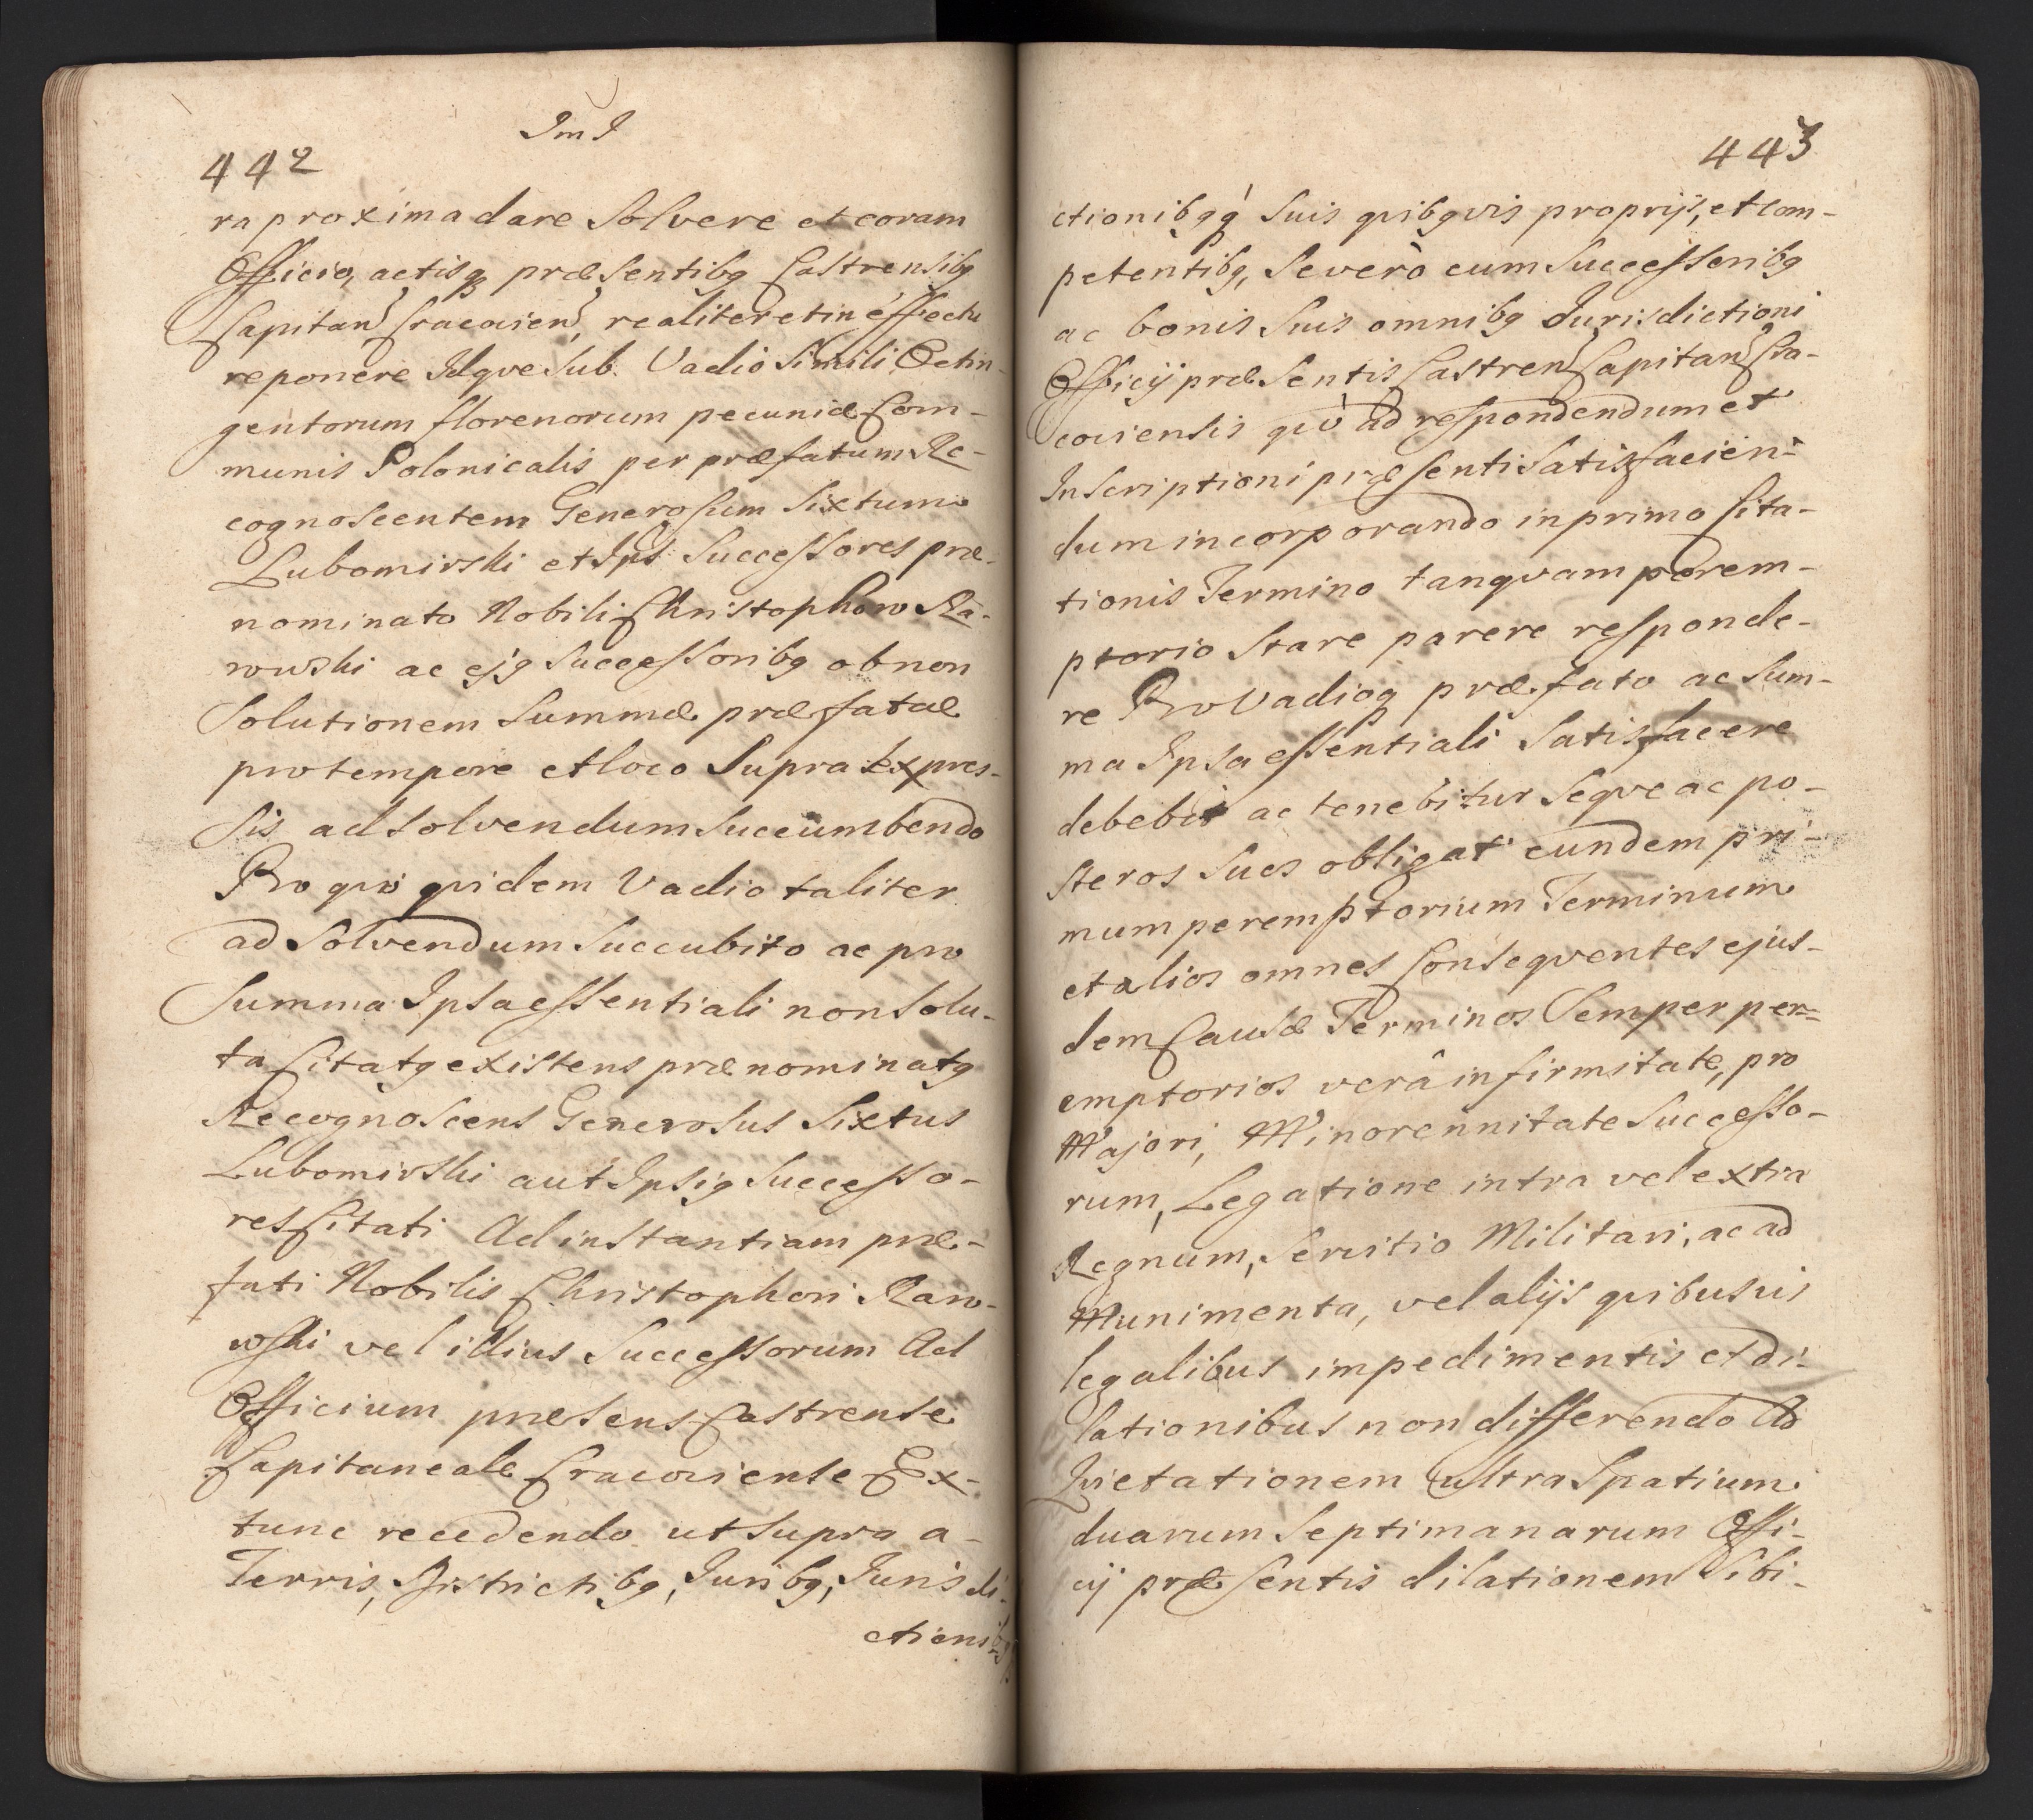 JmJ
442
ra proxima dare Solvere et coram
Officio, actisq; præsentibq Castrensibq
Capitan Cracovien, realiter et in effectu
reponere Idqve Sub Vadio Simili Octin-
gentorum florenorum pecuniæ Com-
munis Polonicalis per præfatum Re-
cognoscentem Generosum Sixtum
Lubomirski et Ips: Successores præ-
nominato Nobili Christophoro Ra-
wwski ac ejq Successoribq ob non
Solutionem Summæ præfatæ
pro tempore et loco Supra expres-
sis ad solvendum Succumbendo
Pro qvo qvidem Vadio taliter
ad Solvendum Succubito ac pro
Summa Ipsa essentiali non Solu-
ta Citatq existens prænominatq
Recognoscens Generosus Sixtus
Lubomirski aut Ipsiq Successo-
res Citati Ad instantiam præ-
fati Nobilis Christophori Raw-
wski vel illius Successorum Ad
Officium præsens Castrense
Capitaneale Cracoviense Ex-
tunc recedendo ut supra a
Terris, Districtibq, Juribq, Jurisdi-
ctionibq
443
ctionibqq Suis qvibqvis proprijs, et Com-
petentibq, Se verò cum Successoribq
ac bonis Suis omnibq Jurisdictioni
Officij præsentis Castren Capitan Cra-
coviensis qvò ad respondendum et
Inscriptioni præsenti Satisfacien-
dum incorporando in primo Cita-
tionis Termino tanqvam perem-
ptorio Stare parere responde-
re Pro Vadioq præfato ac Sum-
ma Ipsa essentiali Satisfacere
debebit ac tenebitur Seqve ac po-
steros Suos obligat eundem pri-
mum peremptorium Terminum
et alios omnes Conseqventes ejus-
dem Causæ Terminos Semper per-
emptorios verâ infirmitate, pro
Majori, Minorennitate Successo-
rum, Legatione intra vel extra
Regnum, Servitio Militari, ac ad
Munimenta, vel alijs qvibusvis
legalibus impedimentis et di-
lationibus non differendo Ad
Qvietationem ultra Spatium
duarum Septimanarum Offi-
cij præsentis dilationem Sibi